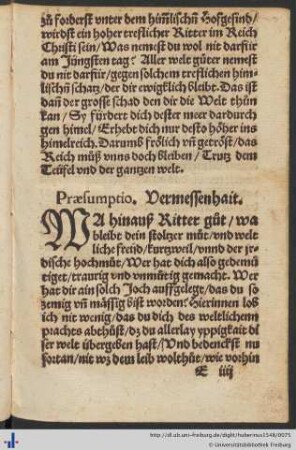 zů forderst vnter dem him̃lischñ Hofgesind/
wirdst ein hoher treflicher Ritter im Reich
Christi sein/Was nemest du wol nit darfür
am Jüngsten tag? Aller welt güter nemest
du nit darfür/gegen solchem treflichen him-
lischñ schatz/der dir ewigklich bleibt. Das ist
dañ der grosse schad den dir die Welt thün
kan/Sy fürdert dich dester meer dardurch
gen himel/Erhebt dich nur desto höher ins
himelreich. Darumb frölich vñ getröst/das
Reich můß vnns doch bleiben/Trutz dem
Teüfel vnd der gantzen welt.
Præsumptio. Vermessenhait.
WA hinauß Ritter gůt/wa
bleibt dein stoltzer můt/vnd welt
liche freüd/kurtzweil/vnnd der jr-
dische hochmůt/Wer hat dich also gedemü
tiget/traurig vnd vnmůtig gemacht. Wer
hat dir ain solch Joch auffgelegt/das du so
zemig vñ mässig bist worden? Hierinnen lob
ich nit wenig/das du dich des weltlichenn
prachts abthůst/dz du allerlay yppigkait di
ser welt übergeben hast/Vnd bedenckst nu
fortan/nit wz dem leib wolthůt/wie vorhin
E iiij
http://dl.ub.uni-freiburg.de/diglit/hubernus1546/0075
© Universitätsbibliothek Freiburg